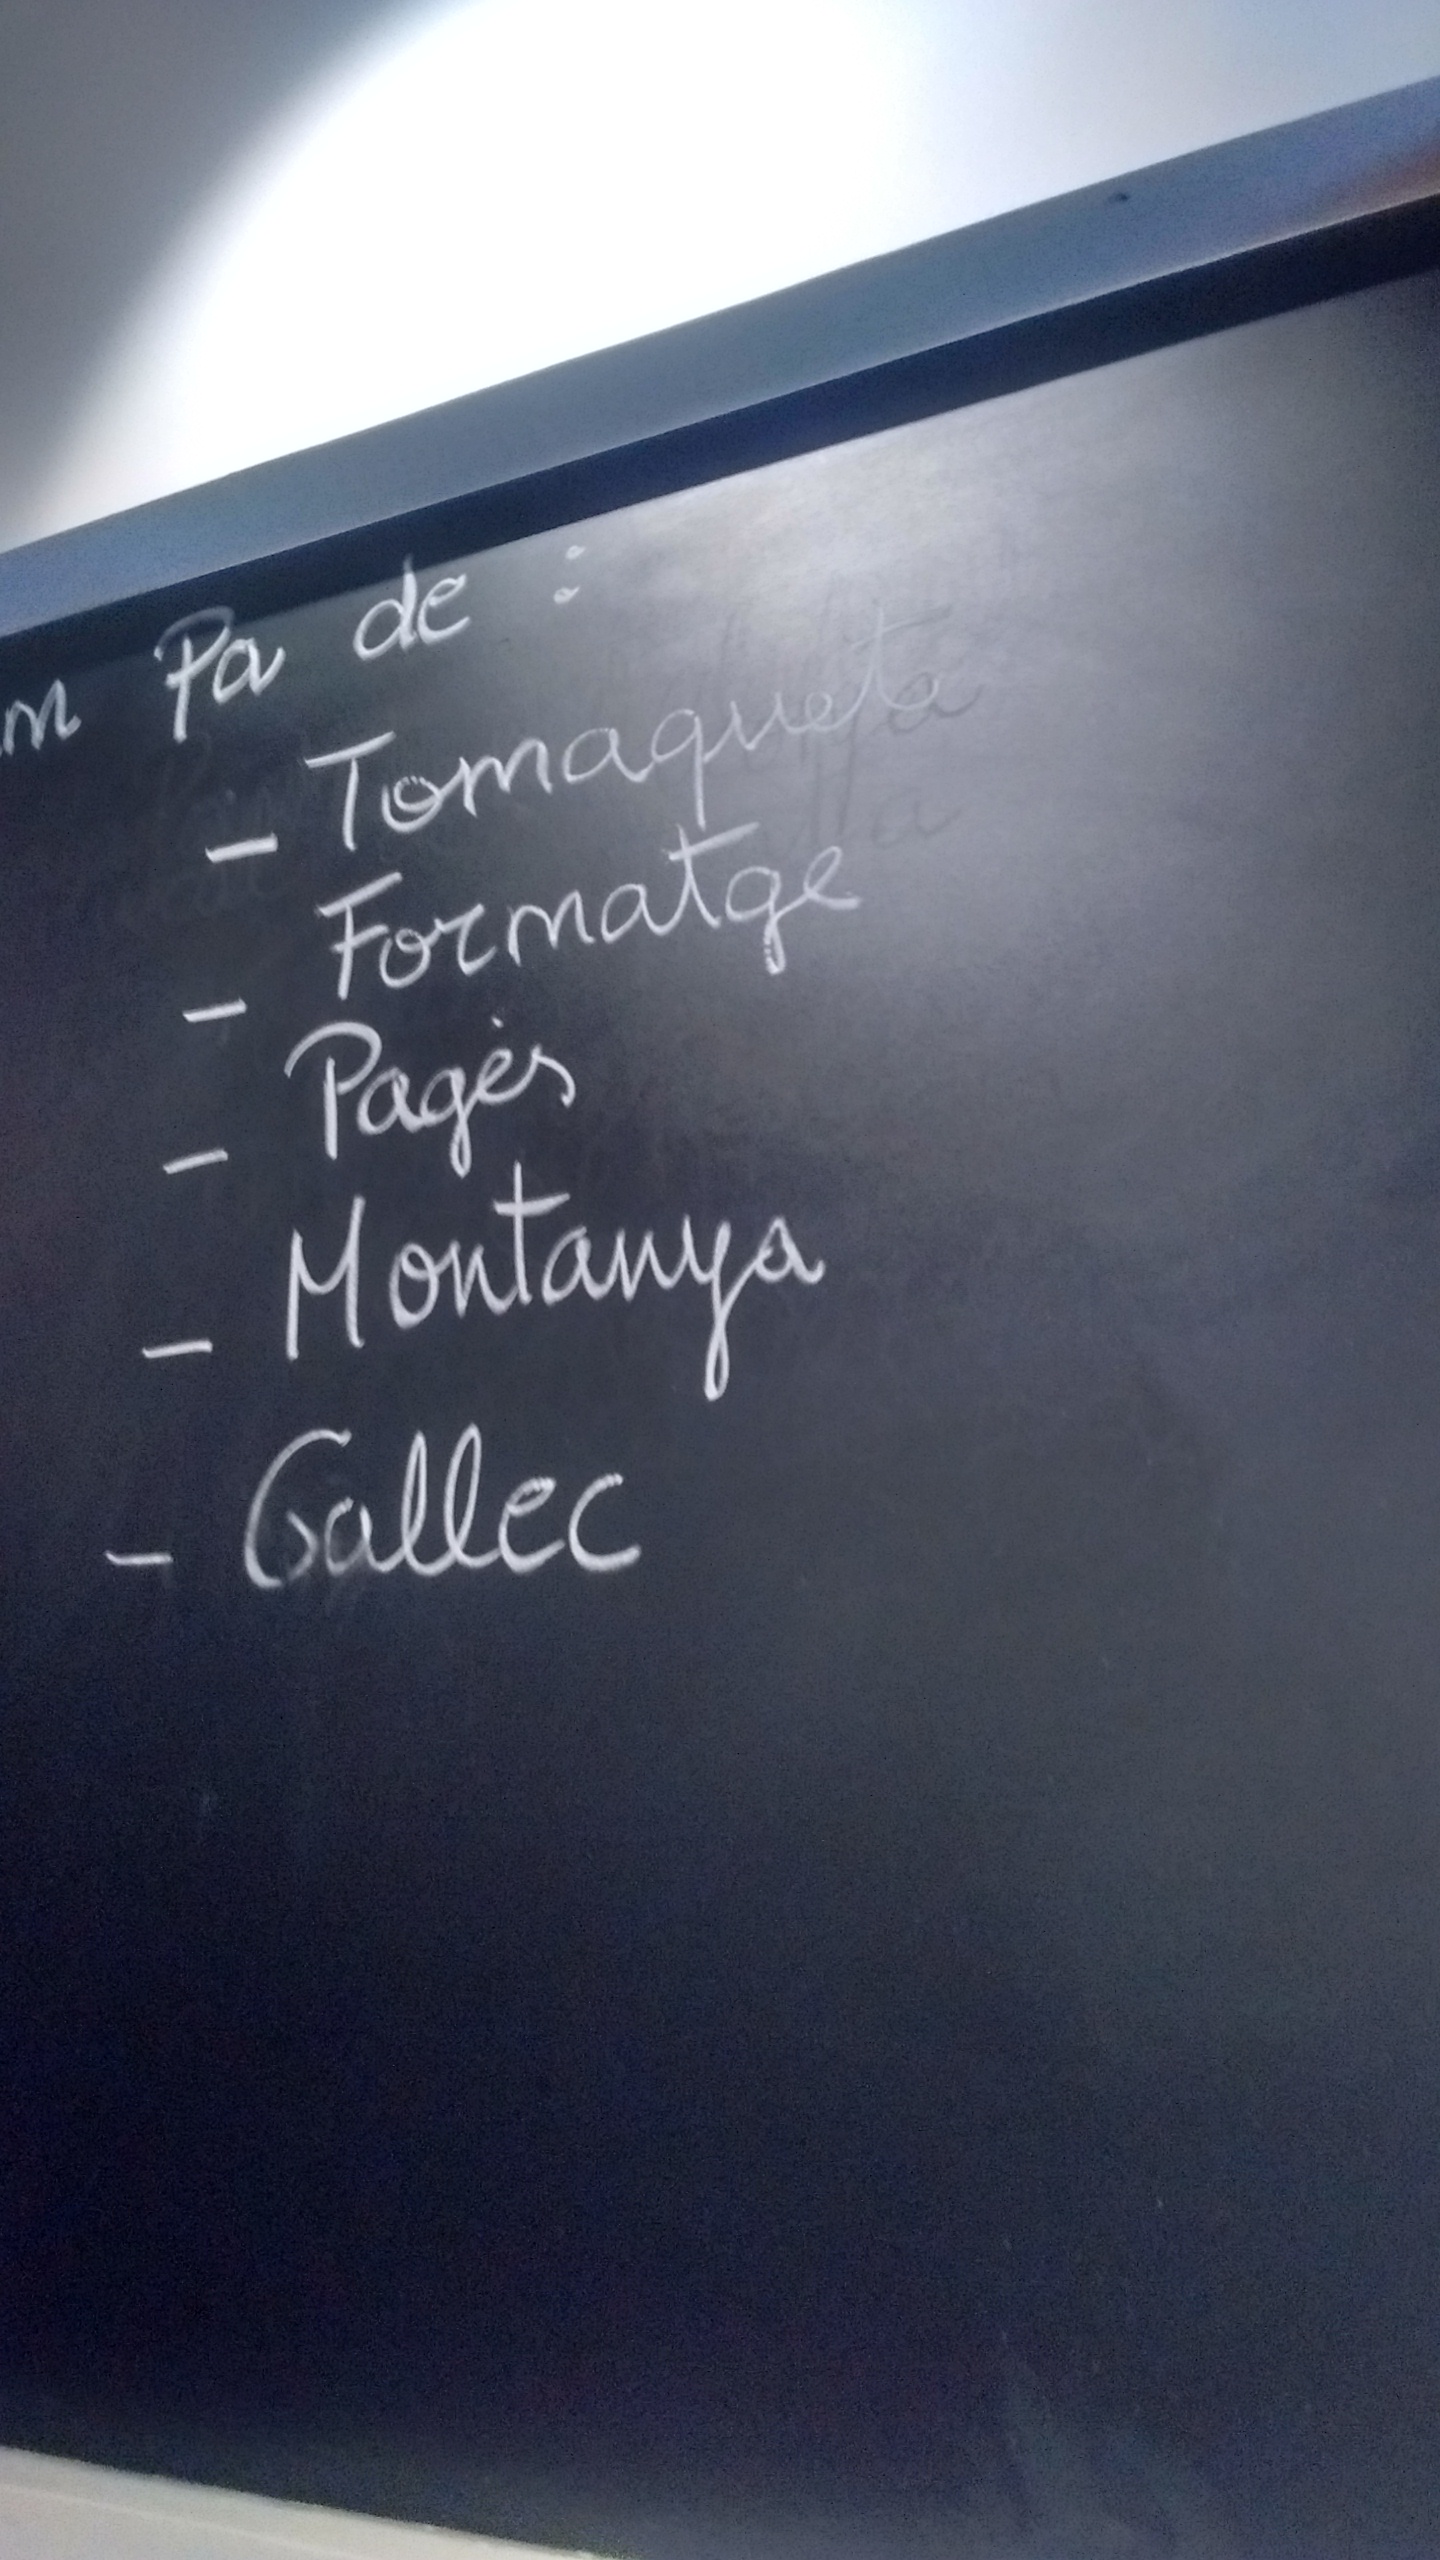 Pa de :
- Tomaqueta
- Formatge
- Pagès
- Montanya
- Gallec